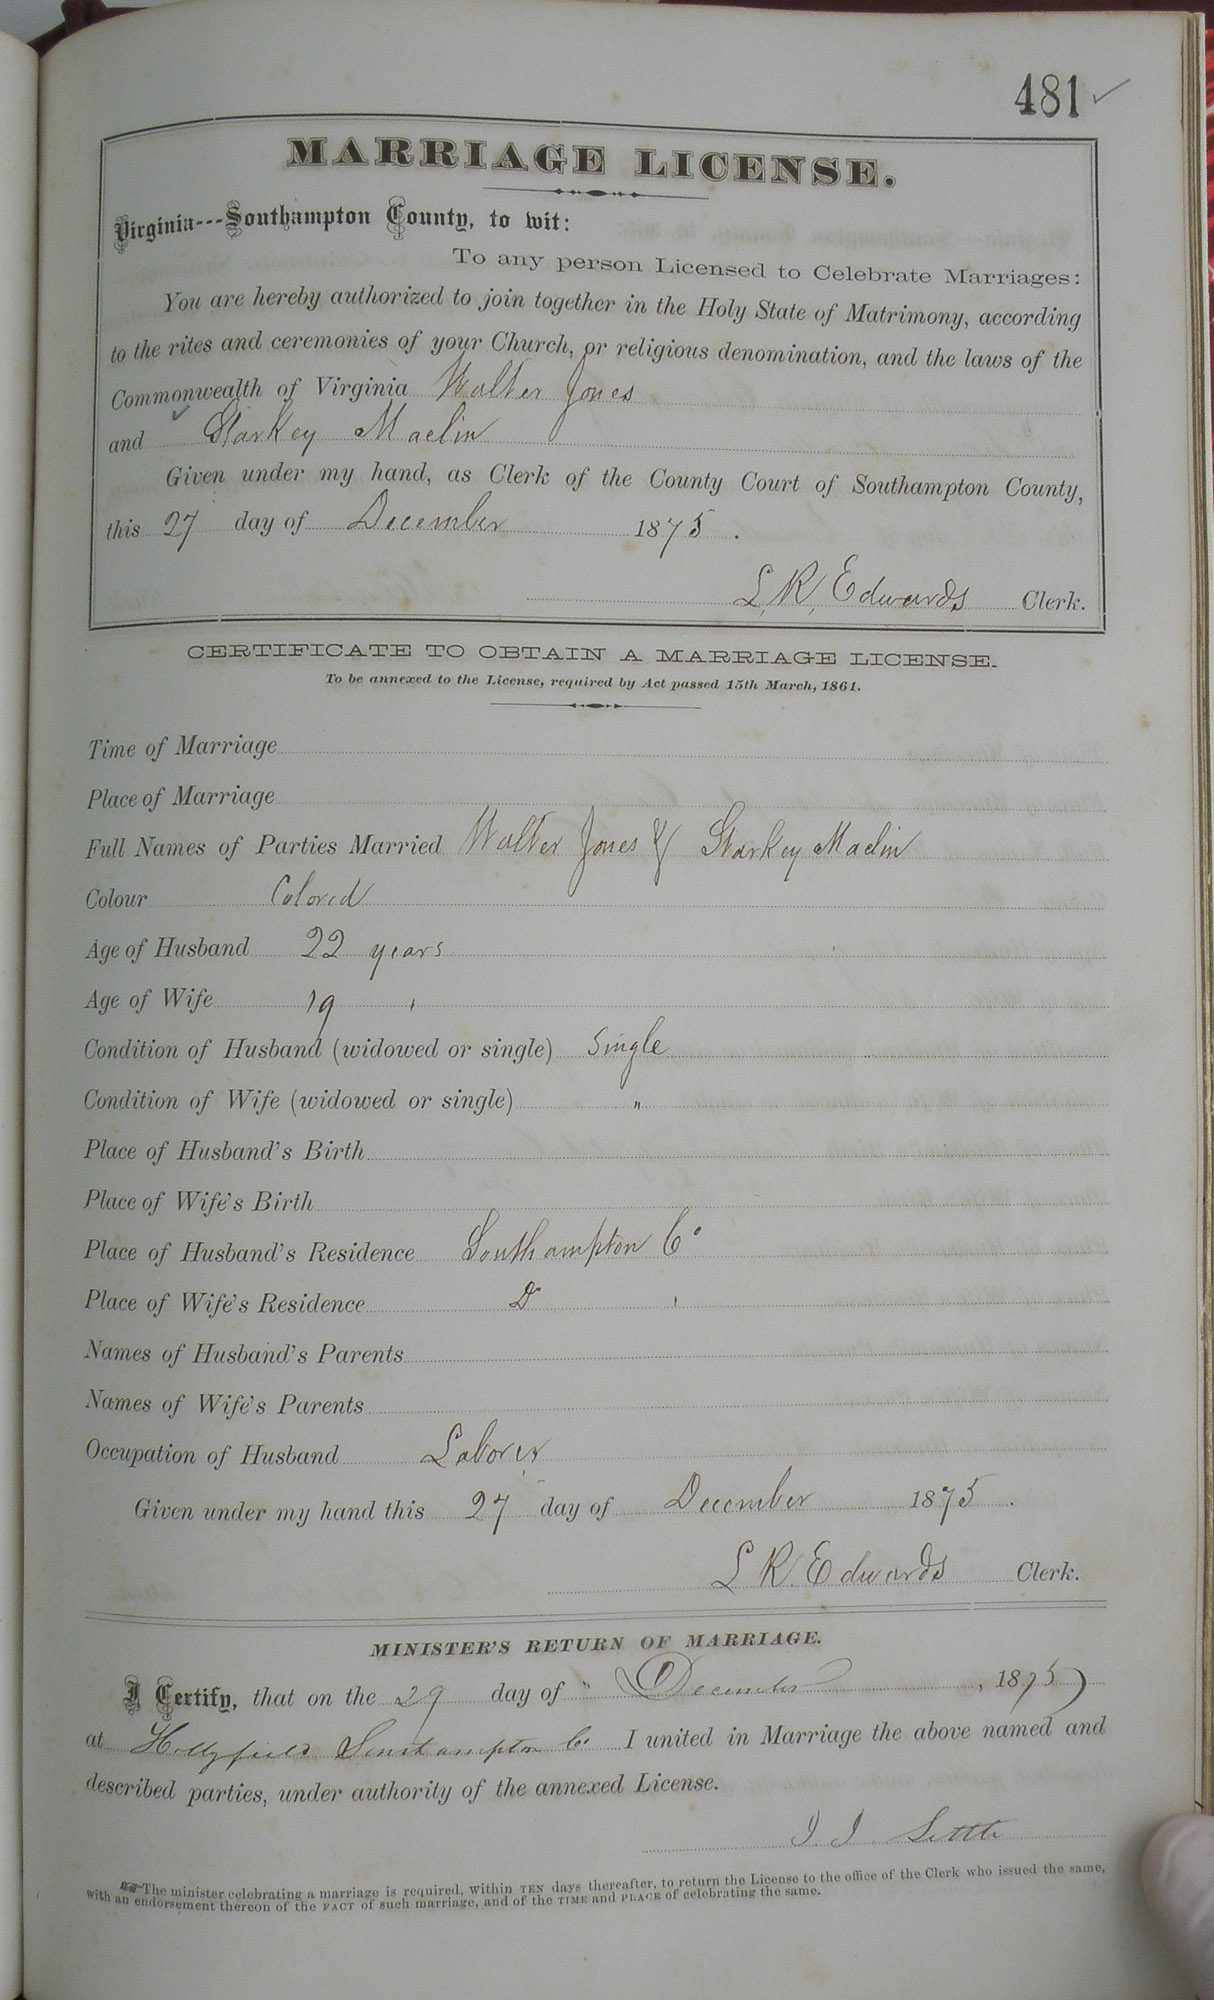 481 ✓
MARRIAGE LICENSE.
Virginia---Southampton County, to wit:
To any person Licensed to Celebrate Marriages:
You are hereby authorized to join together in the Holy State of Matrimony, according
to the rites and ceremonies of your Church, or religious denomination, and the laws of the
Commonwealth of Virginia Walter Jones
and Starkey Maclin
Given under my hand, as Clerk of the County Court of Southampton County,
this 27 day of December 1875.
L. R. Edwards Clerk.
CERTIFICATE TO OBTAIN A MARRIAGE LICENSE.
To be annexed to the License, required by Act passed 15th March, 1861.
Time of Marriage
Place of Marriage
Full Names of Parties Married Walter Jones & Starkey Maclin
Colour Colored
Age of Husband 22 years
Age of Wife 19 "
Condition of Husband (widowed or single) Single
Condition of Wife (widowed or single) "
Place of Husband's Birth
Place of Wife's Birth
Place of Husband's Residence Southampton Co
Place of Wife's Residence Do "
Names of Husband's Parents
Names of Wife's Parents
Occupation of Husband Laborer
Given under my hand this 27 day of December 1875.
L R. Edwards Clerk.
MINISTER'S RETURN OF MARRIAGE.
I Certify, that on the 29 day of " December, 1875
at Hollyfield Southampton Co. I united in Marriage the above named and
described parties, under authority of the annexed License.
J J Settle
☞The minister celebrating a marriage is required, within TEN days thereafter, to return the License to the office of the Clerk who issued the same,
with an endorsement thereon of the FACT of such marriage, and of the TIME and PLACE of celebrating the same.